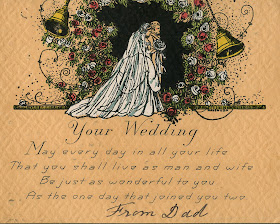 Your Wedding
May every day in all your life
That you shall live as man and wife
Be just as wonderful to you
As the one day that joined you two.
From Dad